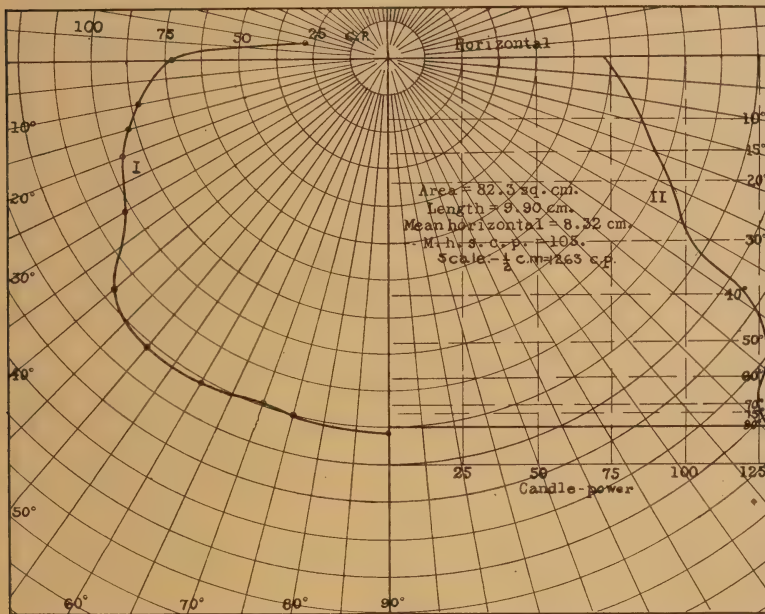 100 75 50 25 C.P.
Horizontal
10°
20°
30°
40°
50°
60° 70° 80° 90°
I
Area = 82.3 sq. cm.
Length = 9.90 cm.
Mean horizontal = 8.32 cm.
M. h. s. c. p. = 105.
Scale - ½ cm = 263 c.p.
II
10°
15°
20°
30°
40°
50°
60°
70°
75
90°
25 50 75 100 125
Candle-power